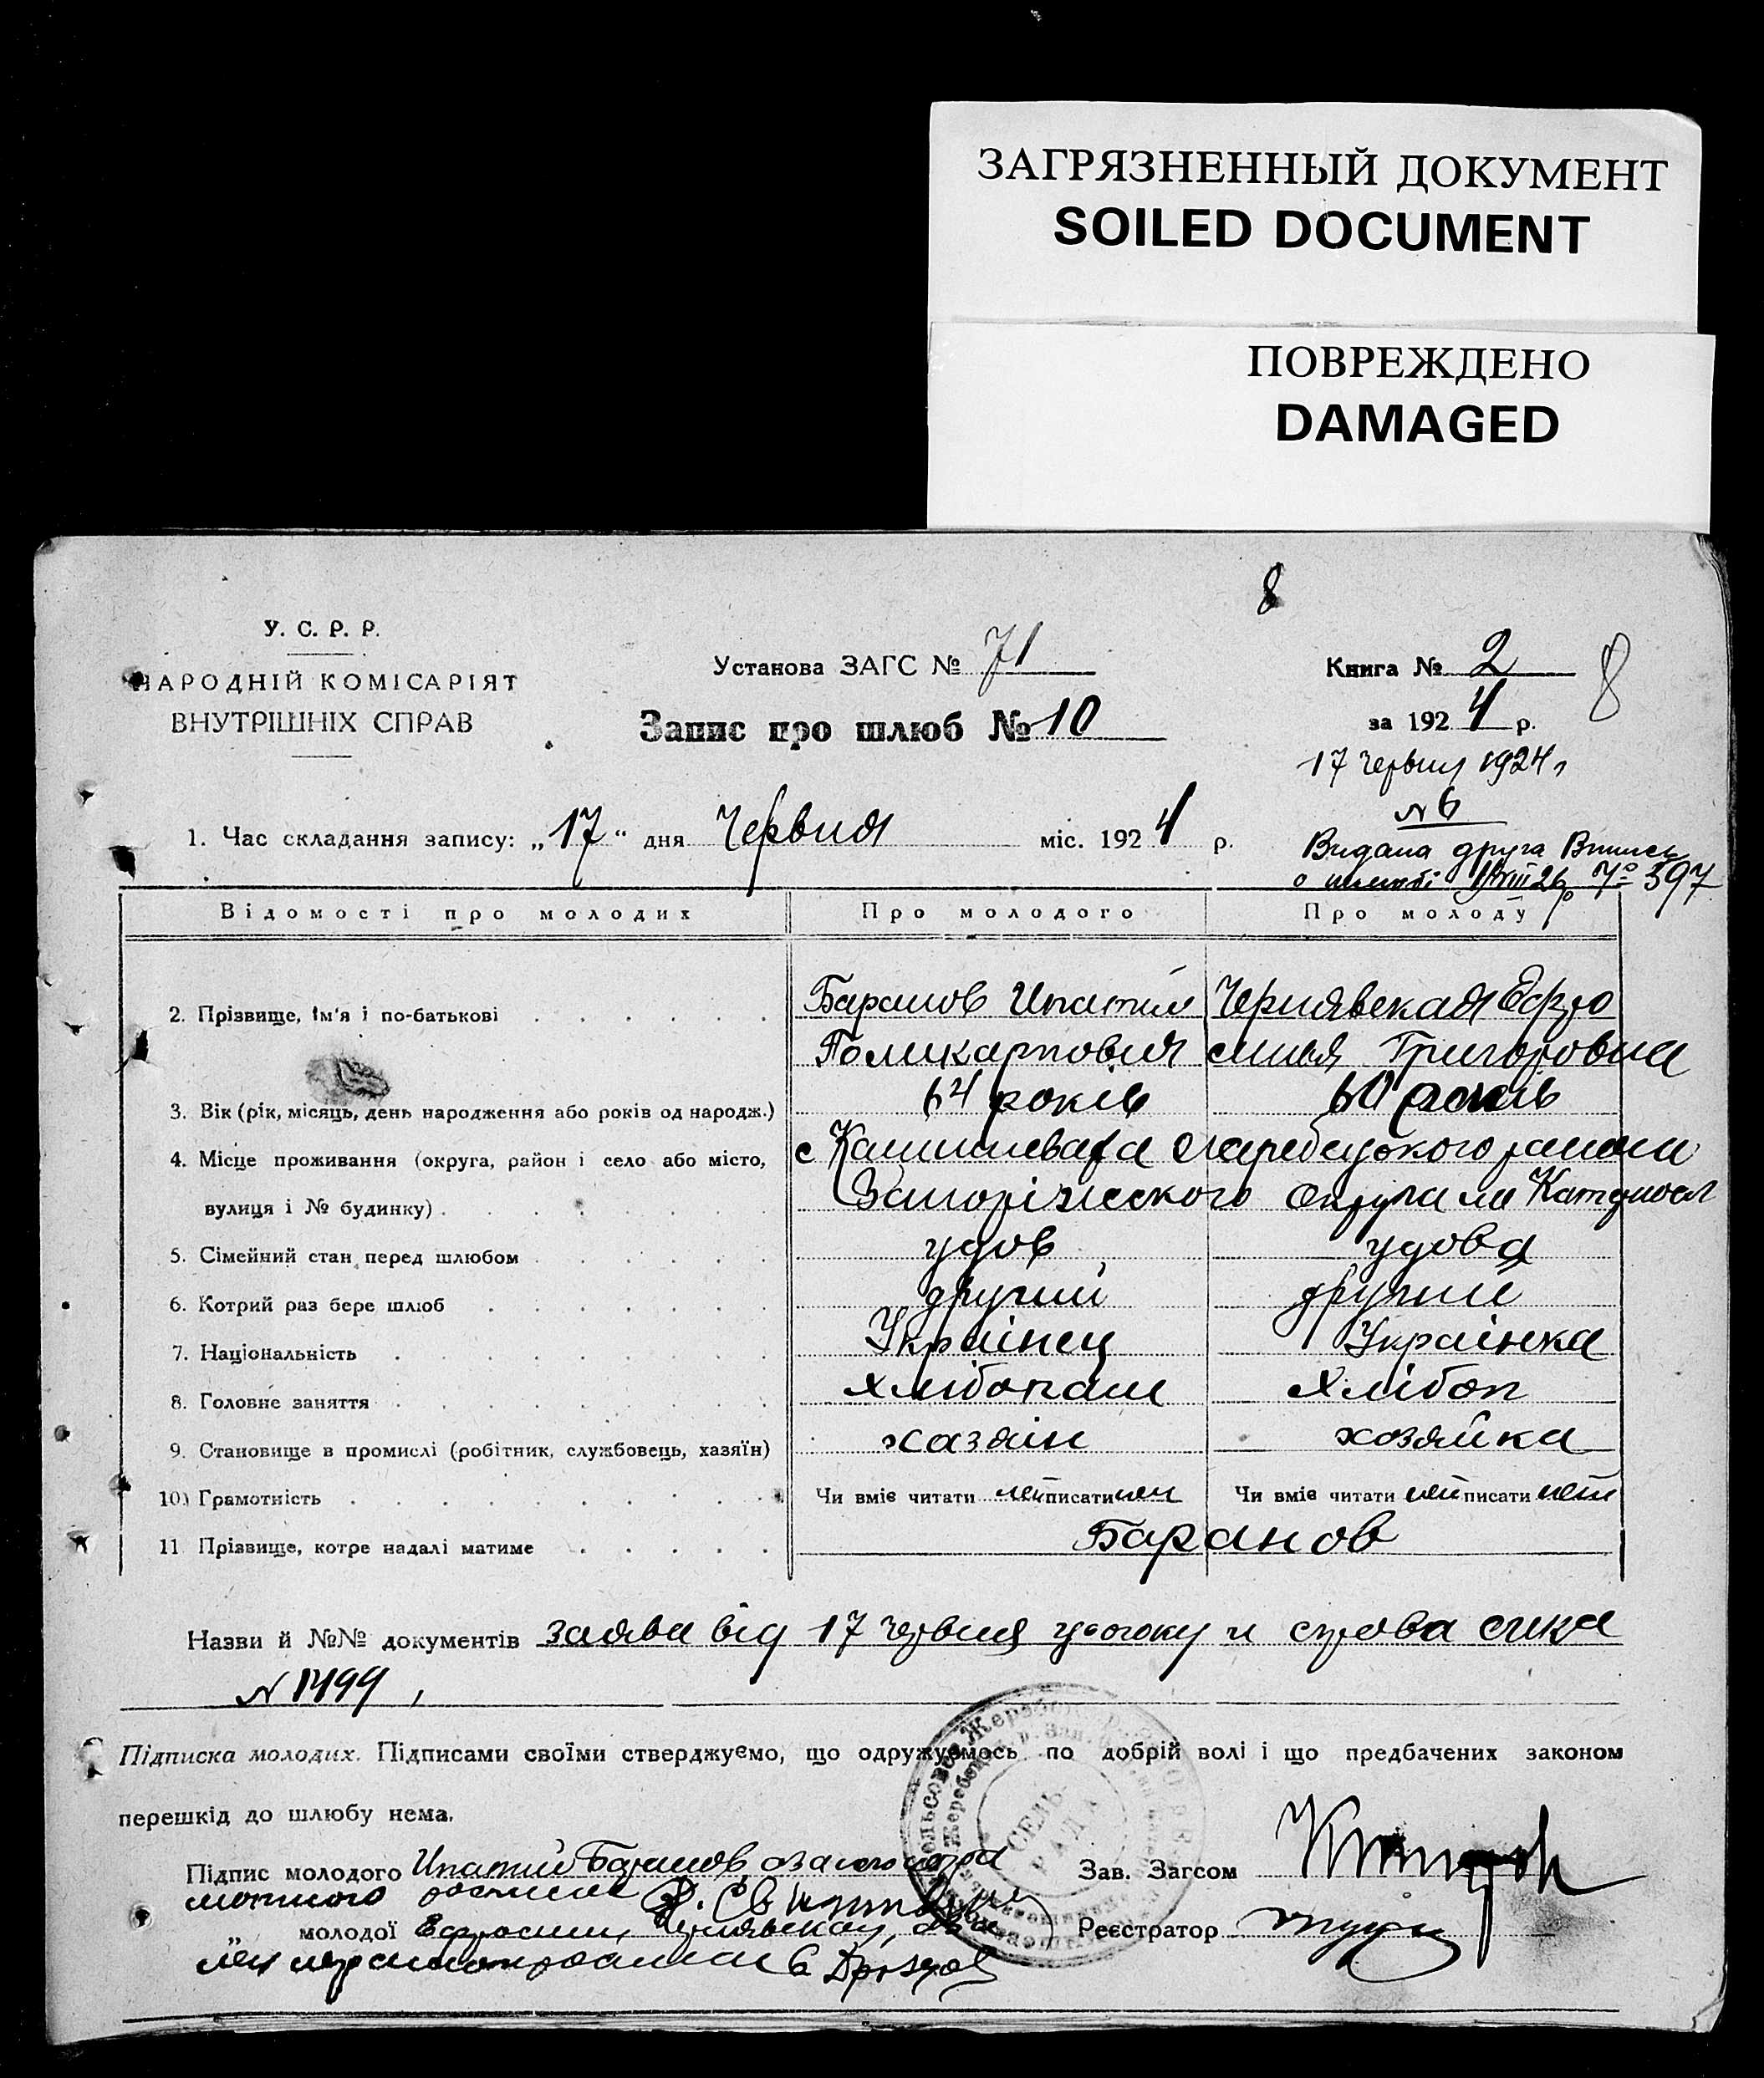 ЗАГРЯЗНЕННЫЙ ДОКУМЕНТ
SOILED DOCUMENT
ПОВРЕЖДЕНО
DAMAGED
8
У. С. Р. Р.
НАРОДНІЙ КОМІСАРІЯТ
ВНУТРІШНІХ СПРАВ
Установа ЗАГС № 71
Запис про шлюб № 10
Книга № 2
8
за 1924 р.
17 червня 1924 г
№ 6
Видана друга Випись
о шлюбі 397
1. Час складання запису: „17“ дня Червня міс. 1924 р.
Відомості про молодих Про молодого Про молоду
2. Прізвище, ім'я і по-батькові Баранов Ипатий Чернявская Ефро
Поликарпович синья Григоровна
3. Вік (рік, місяць, день народження або років од народж.) 64 років 60 років
4. Місце проживання (округа, район і село або місто, с Камишеваха Жеребецького района
вулиця і № будинку) Запоріжского Округа на Катериносл
5. Сімейний стан перед шлюбом удов удова
6. Котрий раз бере шлюб другий другий
7. Національність Українец Українка
8. Головне заняття хлібопаш Хлібоп
9. Становище в промислі (робітник, службовець, хазяїн) хазяін хозяйка
10) Грамотність Чи вміє читати нет писати нет Чи вміє читати нет писати нет
11. Прізвище, котре надалі матиме Баранов
Назви й №№ документів заява від 17 червня
№ 1499
Підписка молодих. Підписами своїми стверджуємо, що одружуємось по добрій волі і що предбачених законом
перешкід до шлюбу нема.
Підпис молодого Ипатий Баранов, а за его негра
мотного
Зав. Загсом
молодої Ефросиния Чернявская,
Реєстратор
СЕЛЬ-
РАДА